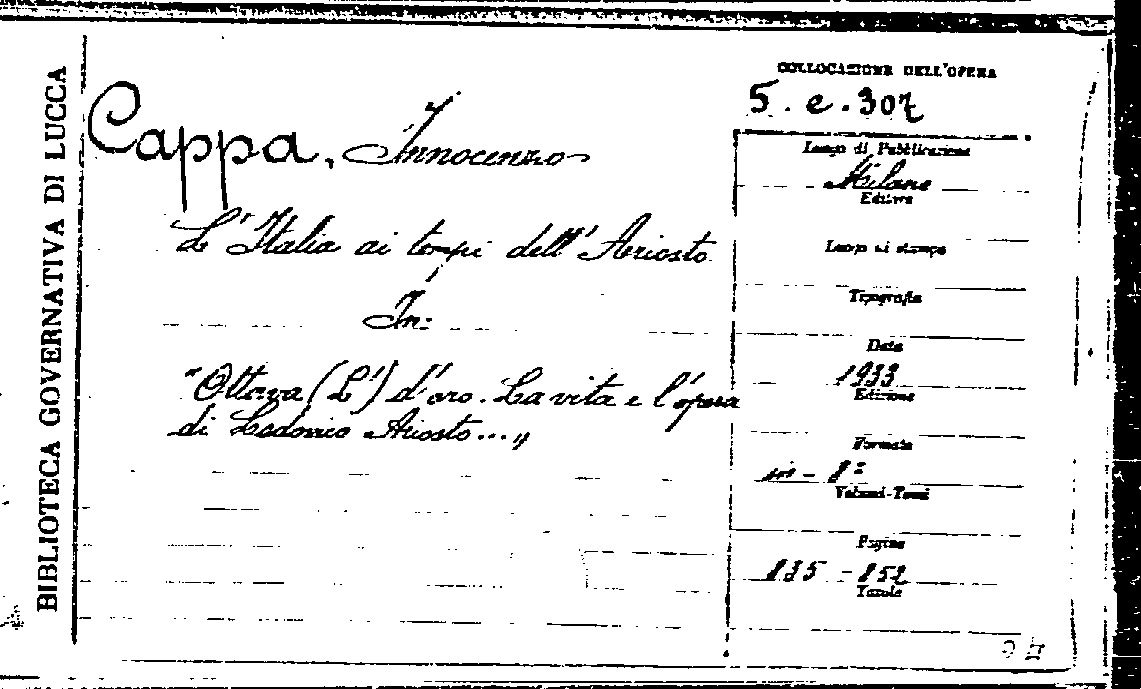 BIBLIOTECA GOVERNATIVA DI LUCCA
Cappa, Innocenzo
L'Italia ai tempi dell'Ariosto
In:
"Ottava (L') d'oro. La vita e l'opera
di Lodovico Ariosto..."
COLLOCAZIONE DELL'OPERA
5. e. 307
Luogo di Pubblicazione
Milano
Editore
Luogo di stampa
Tipografia
Data
1933
Edizione
Formato
in - 8º
Volumi-Tomi
Pagine
835 - 852
Tavole